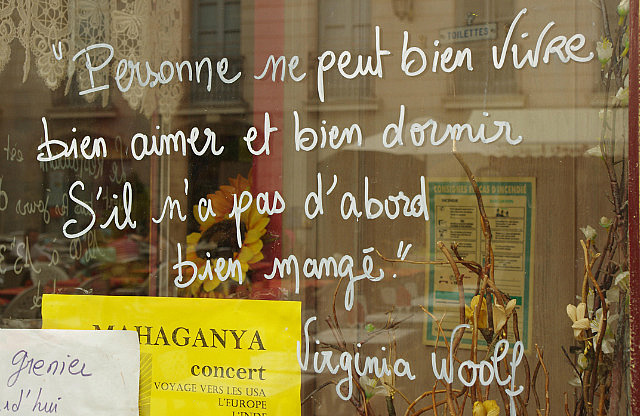 TOILETTES
"Personne ne peut bien vivre
bien aimer et bien dormir
S'il n'a pas d'abord
bien mangé."
Virginia Woolf
CONSIGNES EN CAS D'INCENDIE
MAHAGANYA
concert
VOYAGE VERS LES USA
L'EUROPE
L'INDE
grenier